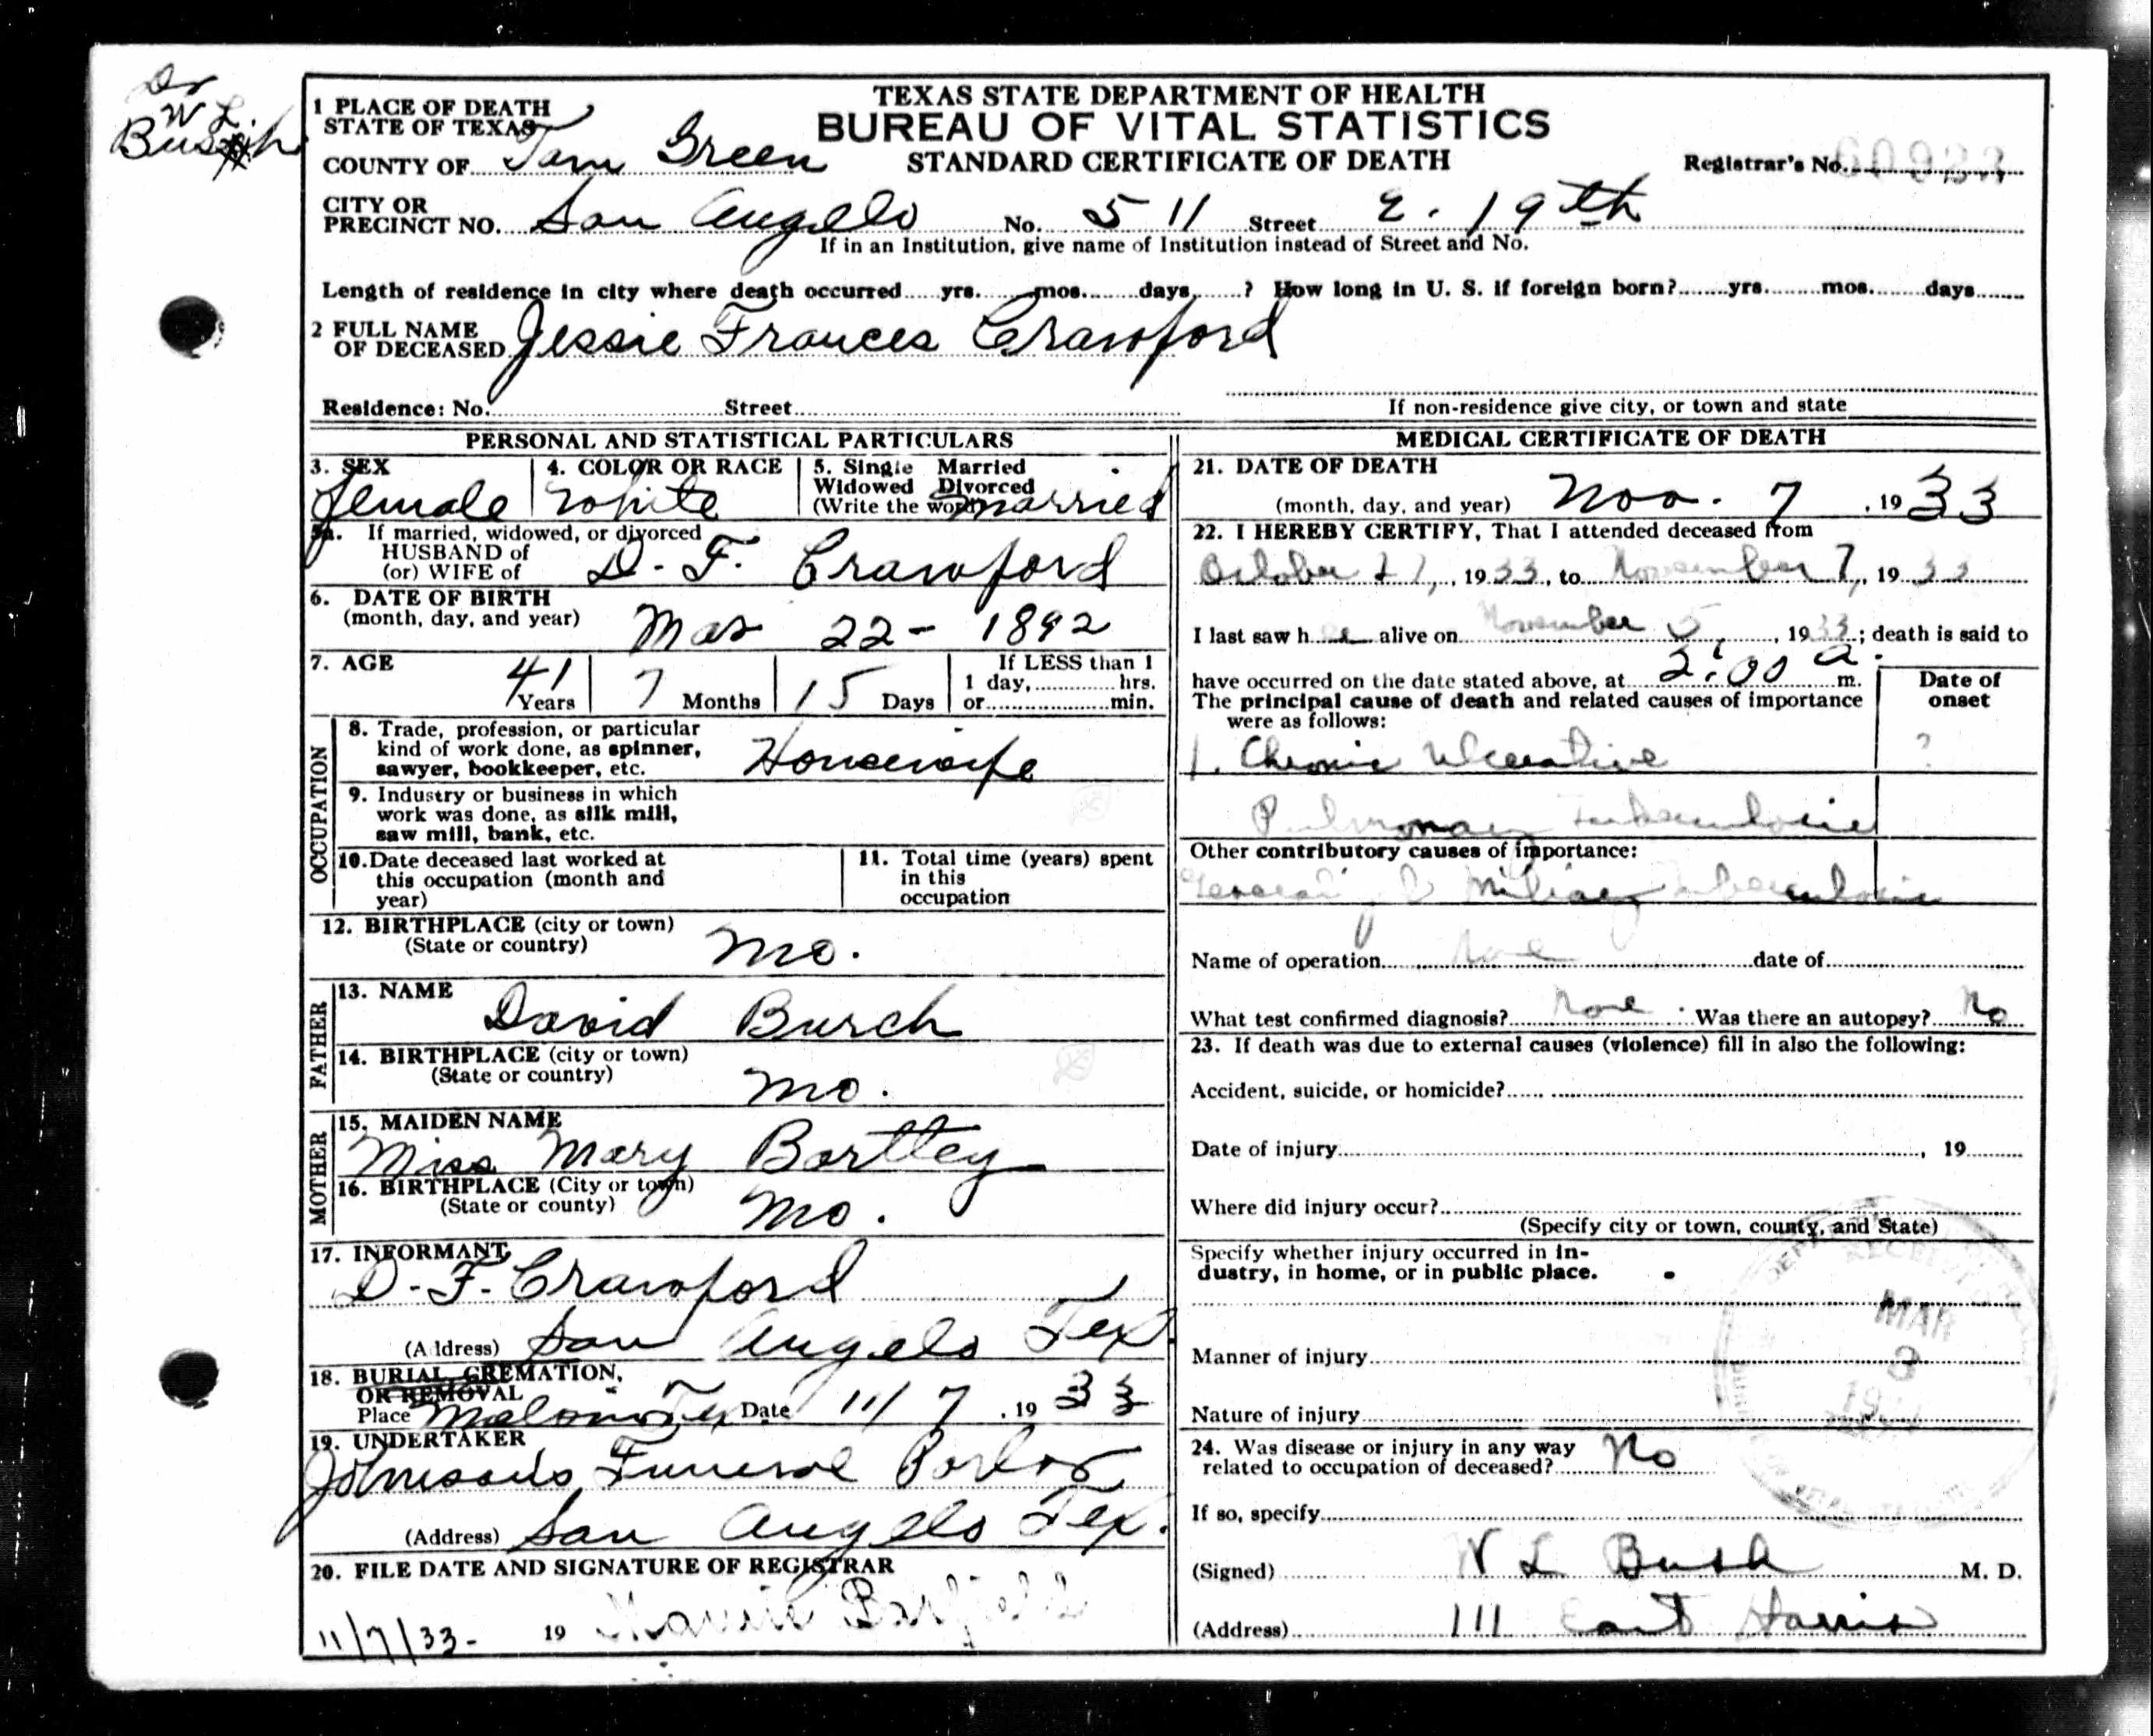 Dr
W L.
Bush
TEXAS STATE DEPARTMENT OF HEALTH
BUREAU OF VITAL STATISTICS
STANDARD CERTIFICATE OF DEATH
Registrar's No.
1 PLACE OF DEATH
STATE OF TEXAS
COUNTY OF Tom Green
CITY OR
PRECINCT NO. San Angelo No. 511 Street E. 19th
If in an Institution, give name of Institution instead of Street and No.
Length of residence in city where death occurred yrs. mos. days ? How long in U. S. if foreign born? yrs. mos. days
2 FULL NAME
OF DECEASED Jessie Frances Crawford
Residence: No. Street
If non-residence give city, or town and state
PERSONAL AND STATISTICAL PARTICULARS
3. SEX
female
4. COLOR OR RACE
White
5. Single Married
Widowed Divorced
(Write the word) married
5a. If married, widowed, or divorced
HUSBAND of
(or) WIFE of D. F. Crawford
6. DATE OF BIRTH
(month, day, and year) Mar 22 - 1892
7. AGE
41 Years 7 Months 15 Days
If LESS than 1
1 day, hrs.
or min.
OCCUPATION
8. Trade, profession, or particular
kind of work done, as spinner,
sawyer, bookkeeper, etc. Housewife
9. Industry or business in which
work was done, as silk mill,
saw mill, bank, etc.
10. Date deceased last worked at
this occupation (month and
year)
11. Total time (years) spent
in this
occupation
12. BIRTHPLACE (city or town)
(State or country) Mo.
FATHER
13. NAME
David Burch
14. BIRTHPLACE (city or town)
(State or country) Mo.
MOTHER
15. MAIDEN NAME
Miss Mary Bartley
16. BIRTHPLACE (City or town)
(State or county) Mo.
17. INFORMANT
D. F. Crawford
(Address) San Angelo Tex.
18. BURIAL, CREMATION,
OR REMOVAL
Place Date 11/7, 1933
19. UNDERTAKER
Johnson's Funeral Parlor
(Address) San Angelo Tex.
20. FILE DATE AND SIGNATURE OF REGISTRAR
11/7/33- 19
MEDICAL CERTIFICATE OF DEATH
21. DATE OF DEATH
(month, day, and year) Nov. 7, 1933
22. I HEREBY CERTIFY, That I attended deceased from
October 1933, to November 7, 1933
I last saw h alive on November 5, 1933; death is said to
have occurred on the date stated above, at 2:00 a. m.
The principal cause of death and related causes of importance
were as follows:
Date of
onset
1. Chronic Ulcerative ?
Pulmonary Tuberculosis
Other contributory causes of importance:
Miliary Tuberculosis
Name of operation None date of
What test confirmed diagnosis? None. Was there an autopsy? No
23. If death was due to external causes (violence) fill in also the following:
Accident, suicide, or homicide?
Date of injury , 19
Where did injury occur?
(Specify city or town, county, and State)
Specify whether injury occurred in in-
dustry, in home, or in public place.
Manner of injury
Nature of injury
24. Was disease or injury in any way
related to occupation of deceased? No
If so, specify
(Signed) W L Bush M. D.
(Address) 111 East Harris
MAR